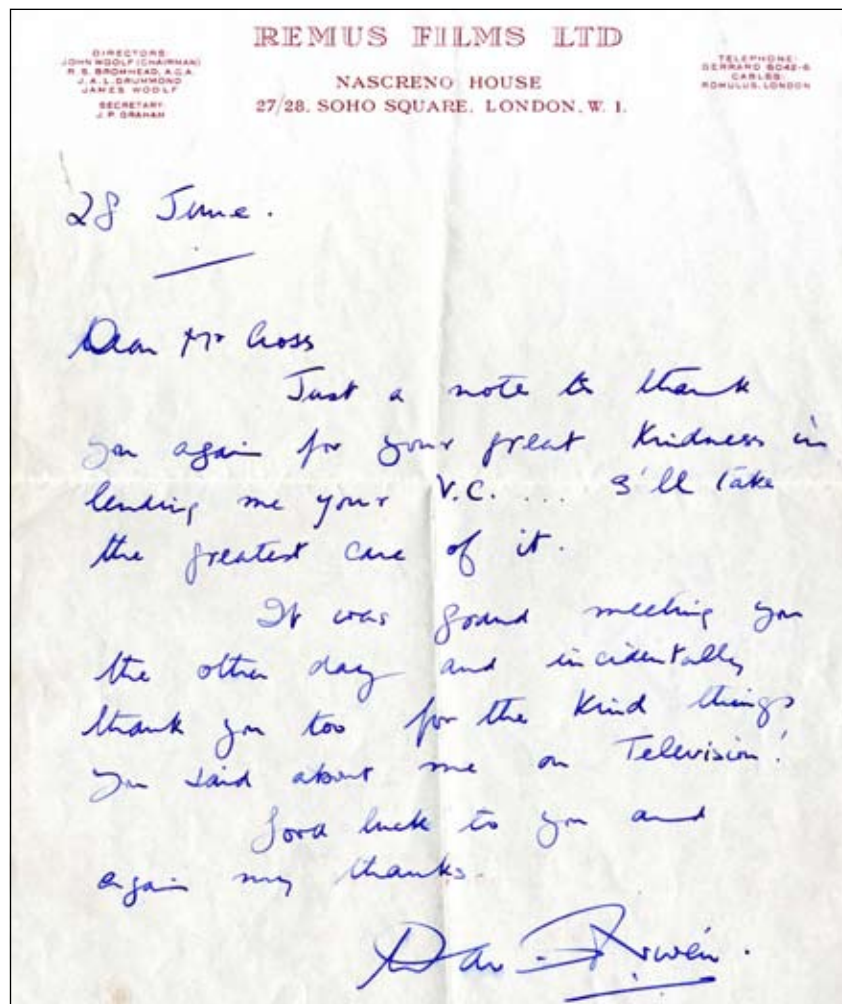 REMUS FILMS LTD
DIRECTORS:
JOHN WOOLF (CHAIRMAN)
R. S. BROMHEAD, A.C.A.
J. A. L. DRUMMOND
JAMES WOOLF
SECRETARY:
J. P. GRAHAM
NASCRENO HOUSE
27/28, SOHO SQUARE, LONDON, W. 1.
TELEPHONE:
GERRARD 6042-6
CABLES:
ROMULUS, LONDON
28 June.
Dear Mr Cross
Just a note to thank
you again for your great kindness in
lending me your V.C. ... I'll take
the greatest care of it.
It was grand meeting you
the other day and incidentally
thank you too for the kind things
you said about me on Television!
Good luck to you and
again my thanks.